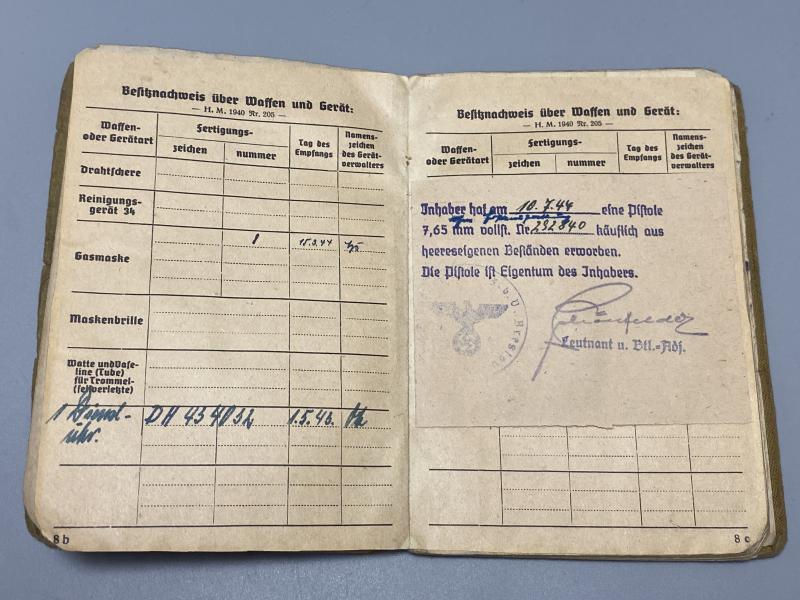 Besitznachweis über Waffen und Gerät:
— H. M. 1940 Nr. 205 —
Waffen-
oder Gerätart
Fertigungs-
zeichen
nummer
Tag des
Empfangs
Namens-
zeichen
des Gerät-
verwalters
Drahtschere
Reinigungs-
gerät 34
Gasmaske
1
Maskenbrille
Watte und Vase-
line (Tube)
für Trommel-
(fellverletzte)
1 Dienst-
uhr.
DH 434052
1.5.43.
8 b
Besitznachweis über Waffen und Gerät:
— H. M. 1940 Nr. 205 —
Waffen-
oder Gerätart
Fertigungs-
zeichen
nummer
Tag des
Empfangs
Namens-
zeichen
des Gerät-
verwalters
Inhaber hat am 10.7.44 eine Pistole
7,65 mm vollst. Nr. 232840 käuflich aus
heereseigenen Beständen erworben.
Die Pistole ist Eigentum des Inhabers.
Breslau
Leutnant u. Btl.-Adj.
8 c